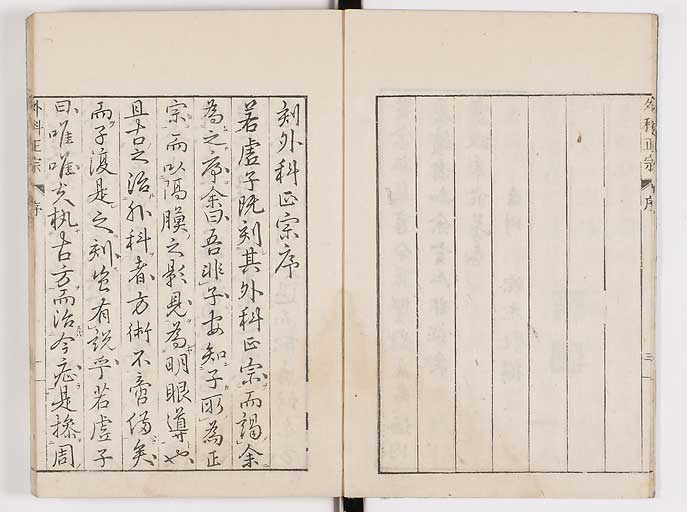 外科正宗
序
三
刻外科正宗序
若虚子既刻其外科正宗而謁余
為之序余曰吾非子安知子所為正
宗而以隔膜之影見為明眼導也
且古之治外科者方術不啻備矣
而子復是之刻豈有説乎若虚子
曰唯唯夫執古方而治今症是操周
外科正宗
序
一